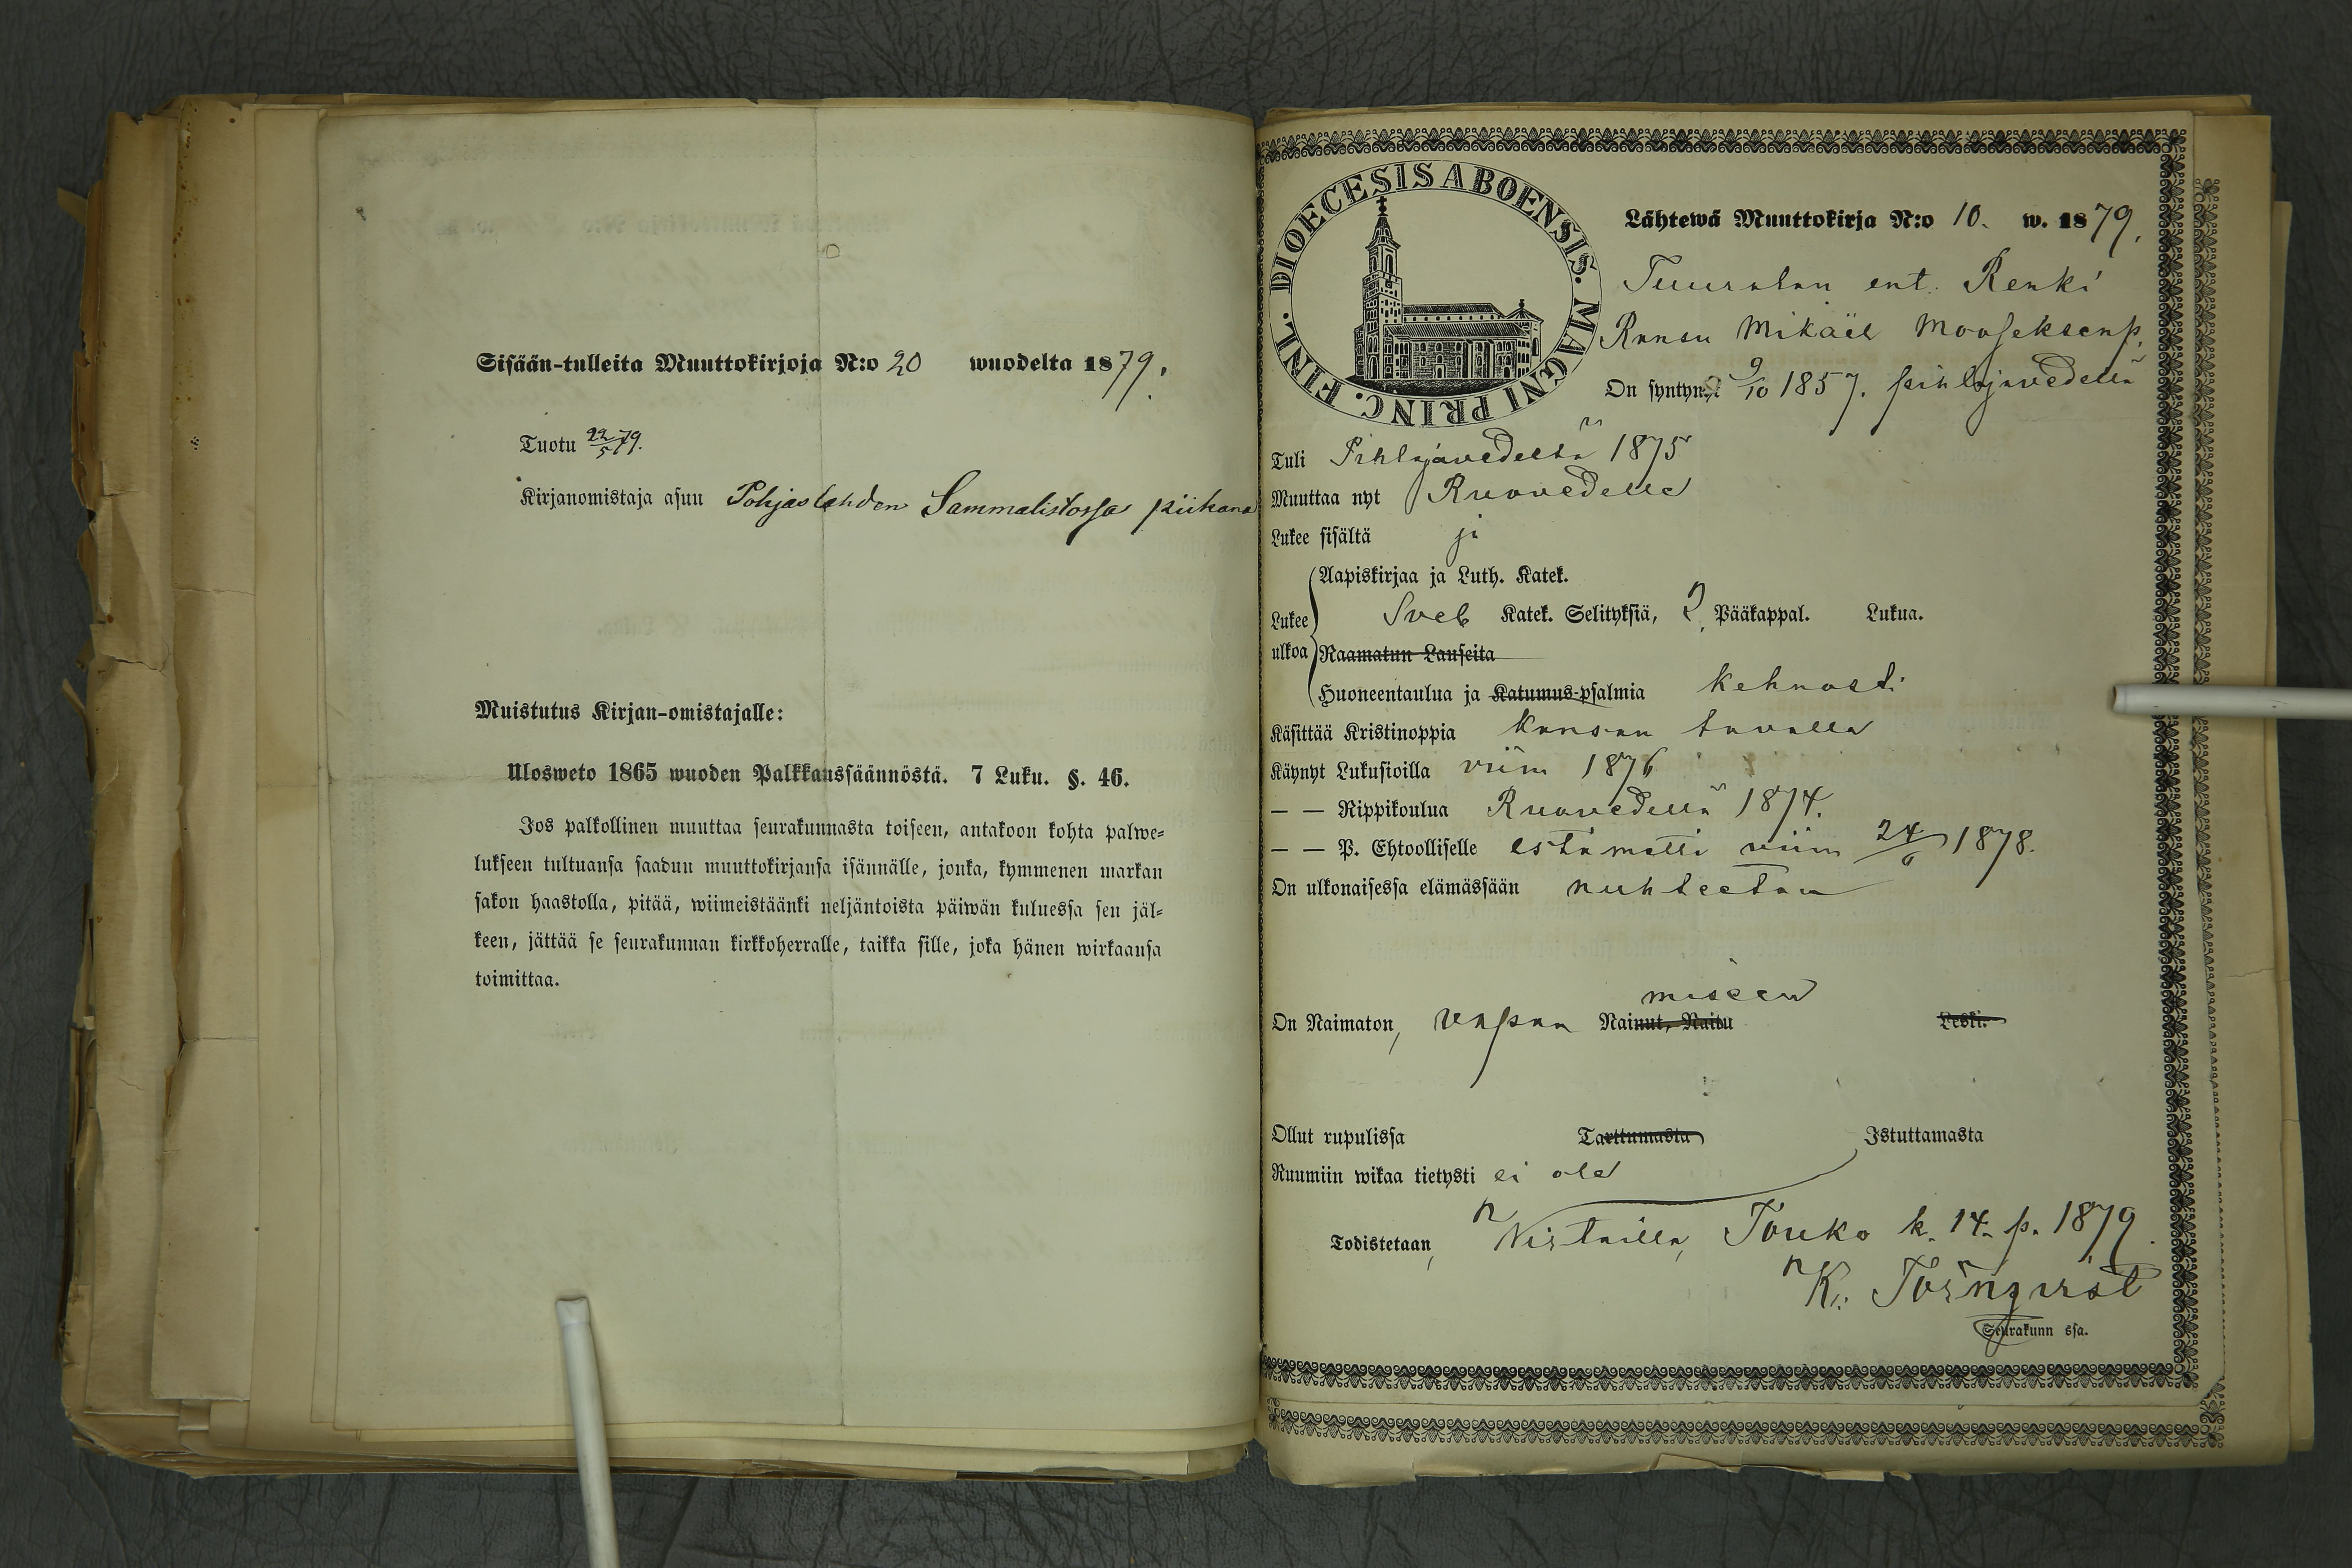 Sisään-tulleita Muuttokirjoja N:o 20 wuodelta 1879.
Tuotu 22/5 79.
Kirjanomistaja asuu Pohjaslahden Sammalistossa piikana
Muistutus Kirjan-omistajalle:
Ulosweto 1865 wuoden Palkkaussäännöstä. 7 Luku. §. 46.
Jos palkollinen muuttaa seurakunnasta toiseen, antakoon kohta palwe-
lukseen tultuansa saadun muuttokirjansa isännälle, jonka, kymmenen markan
sakon haastolla, pitää, wiimeistäänki neljäntoista päiwän kuluessa sen jäl-
keen, jättää se seurakunnan kirkkoherralle, taikka sille, joka hänen wirkaansa
toimittaa.
DIOECESIS ABOENSIS. MAGNI PRINC. FINL.
Lähtewä Muuttokirja N:o 10. w. 1879.
ent. Renki
Ransu Mikäel Mooseksenp.
On syntynyt 9/10 1857. Pihlajavedellä
Tuli Pihlajavedeltä 1875
Muuttaa nyt Ruovedelle
Lukee sisältä ja
Aapiskirjaa ja Luth. Katek.
Lukee Sveb Katek. Selityksiä, 2, Pääkappal. Lukua.
ulkoa Raamatun Lauseita
Huoneentaulua ja Katumus-psalmia kehnosti
Käsittää Kristinoppia kansan tavalla
Käynyt Lukusioilla viim 1876
— — Rippikoulua Ruovedellä 1874.
— — P. Ehtoolliselle estämättä viim 24/6 1878.
On ulkonaisessa elämässään nuhteeton
miseen
On Naimaton, vapaa Nainut, Naitu Leski.
Ollut rupulissa Tarttumasta Istuttamasta
Ruumiin wikaa tietysti ei ole
Todistetaan, Virtailla, Touko k. 14. p. 1879.
K. Törnqvist
Seurakunn ssa.